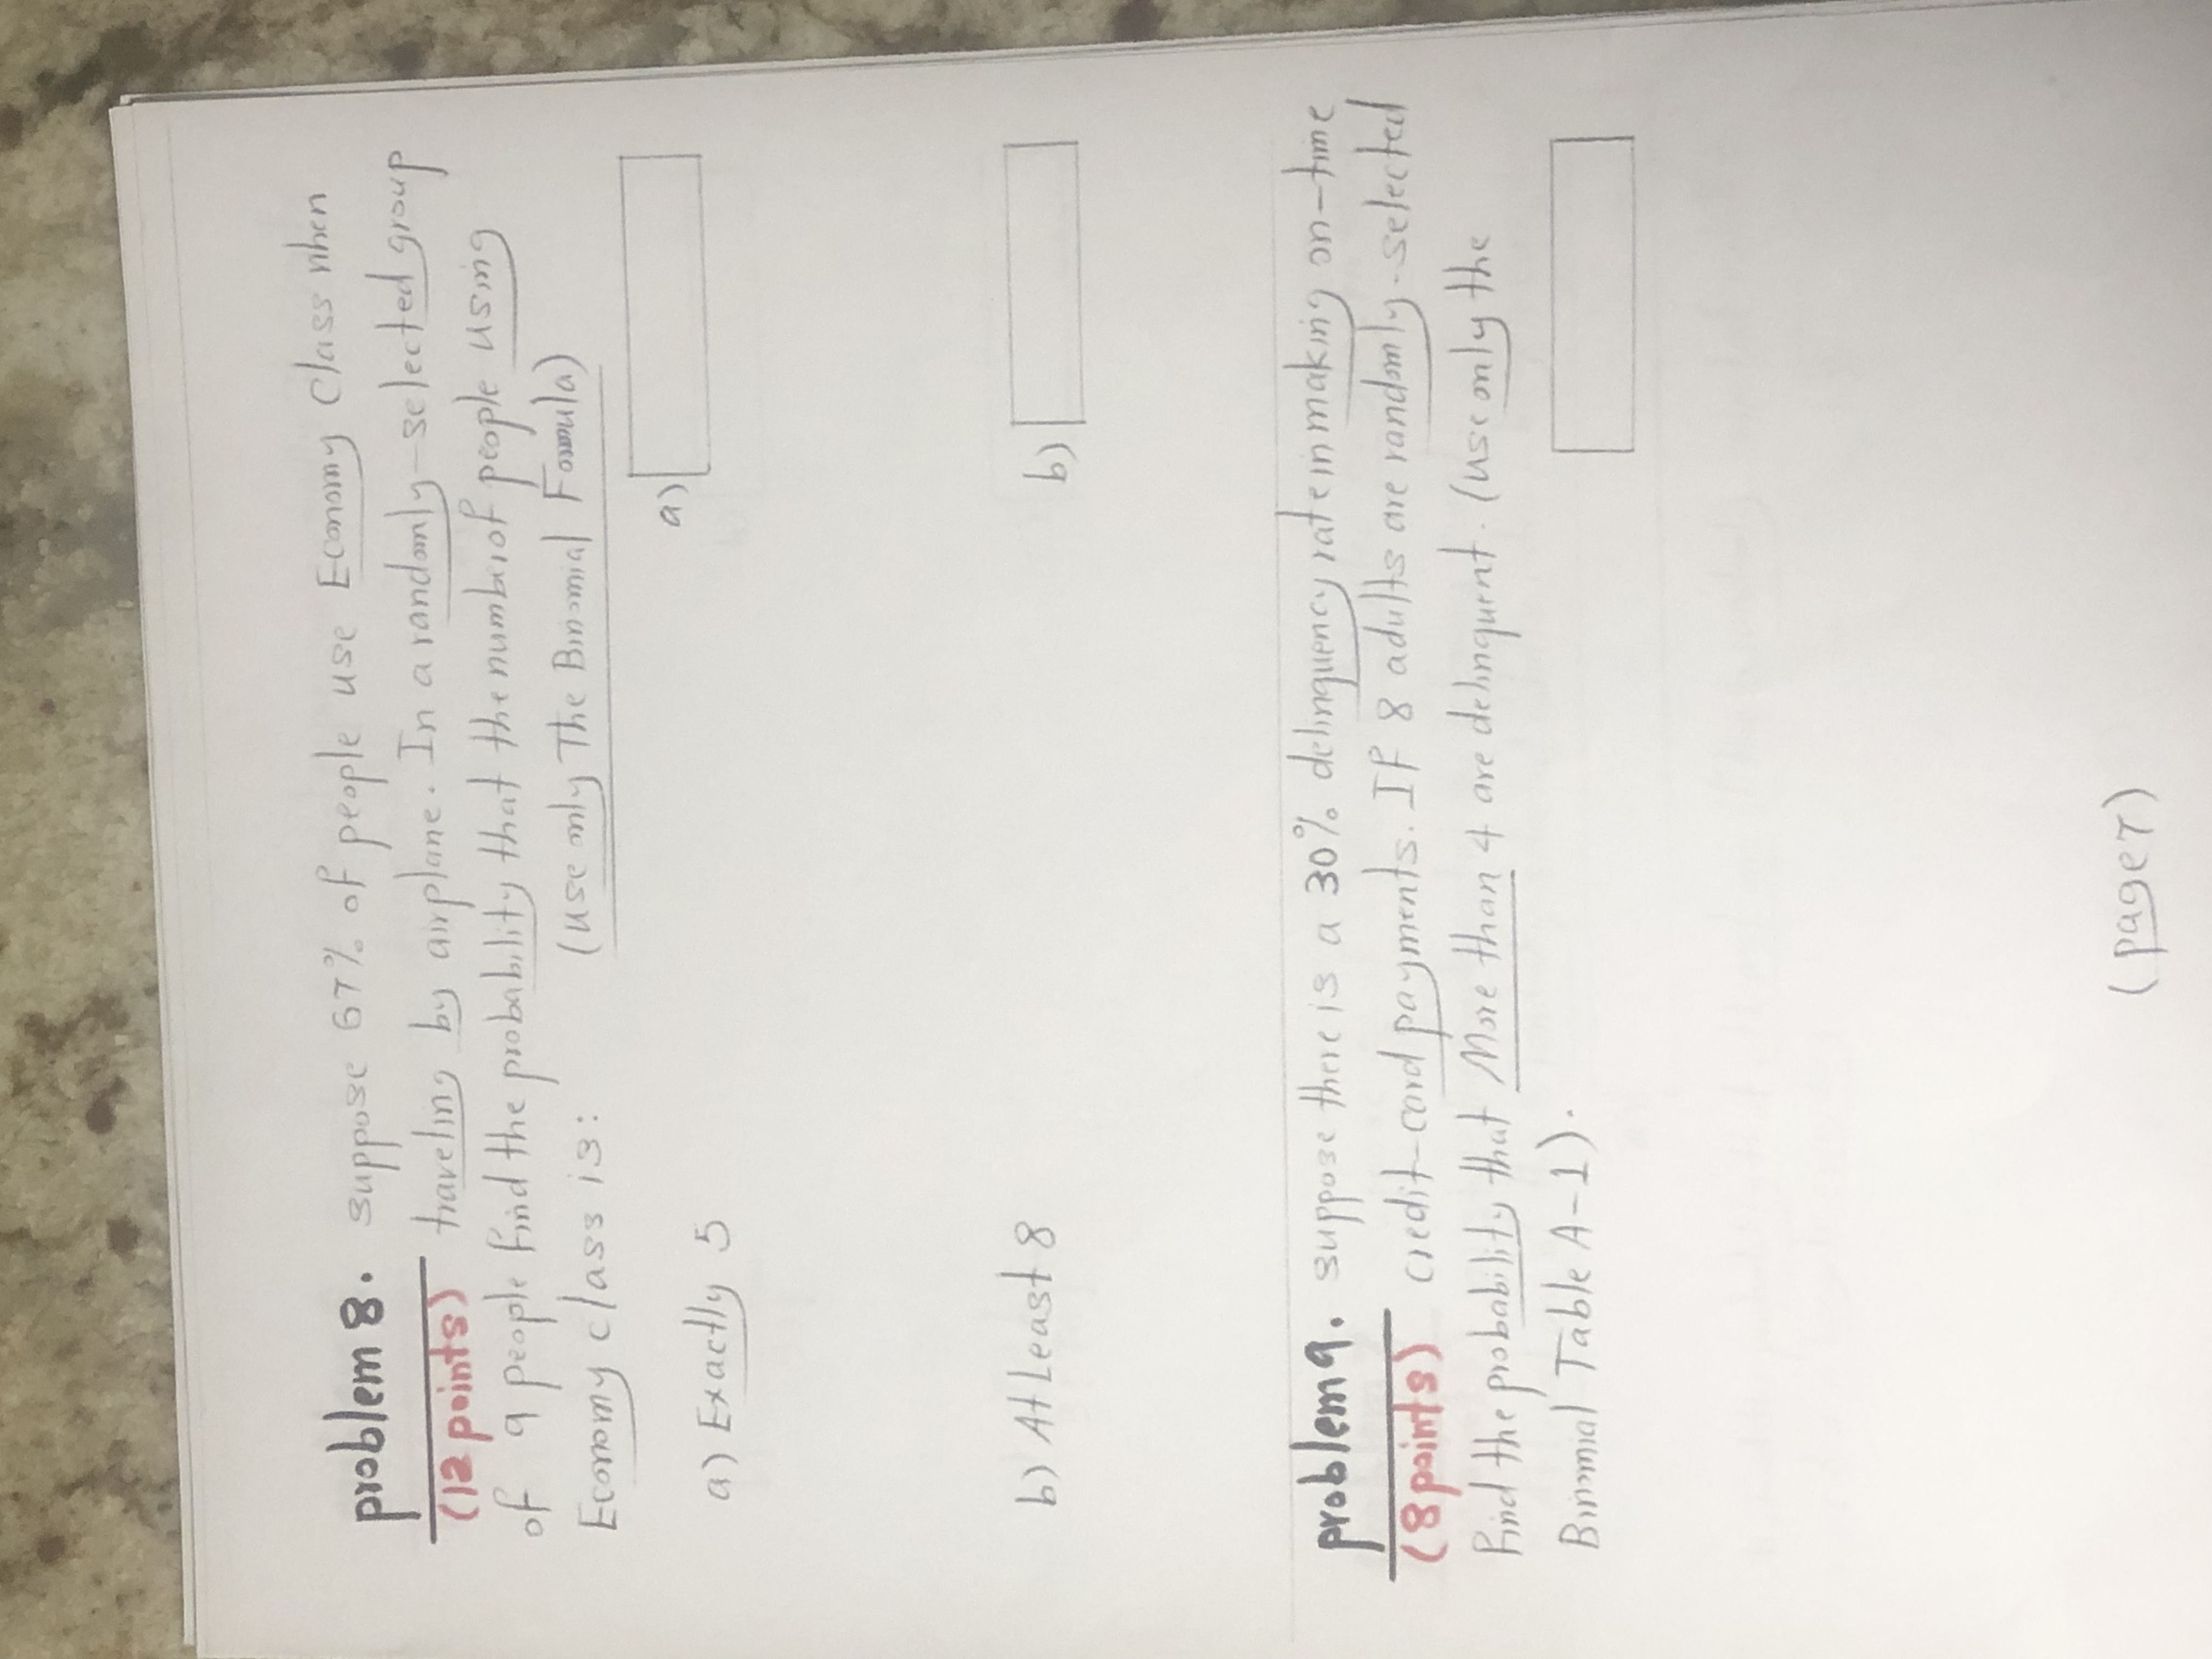 problem 8. suppose 67% of people use Economy Class when
(12 points) traveling by airplane. In a randomly-selected group
of 9 people find the probability that the number of people using
Economy class is: (use only The Binomial Formula)
a) Exactly 5 a)
b) At Least 8 b)
problem 9. suppose there is a 30% delinquency rate in making on-time
(8 points) credit-card payments. If 8 adults are randomly-selected
find the probability that More than 4 are delinquent. (use only the
Binomial Table A-1).
(page 7)